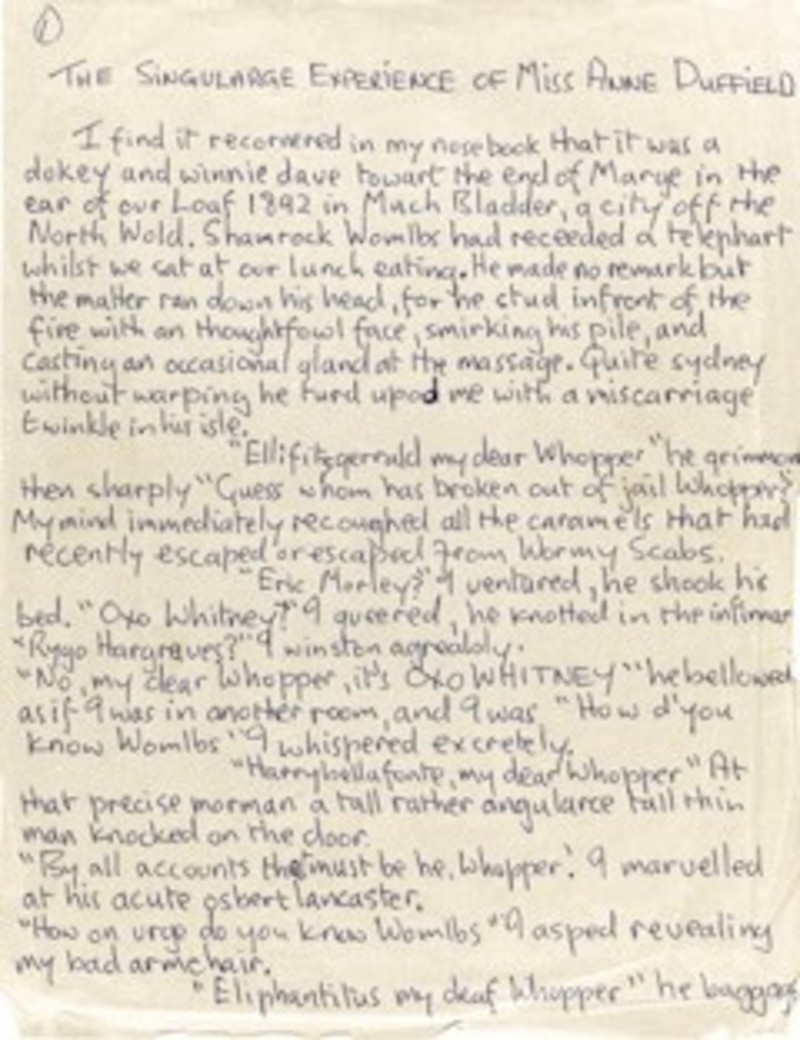 1
THE SINGULARGE EXPERIENCE OF MISS ANNE DUFFIELD
I find it recornered in my nosebook that it was a
dokey and winnie dave towart the end of Marge in the
ear of our Loaf 1892 in Much Bladder, a city off the
North Wold. Shamrock Womlbs had receeded a telephart
whilst we sat at our lunch eating. He made no remark but
the matter ran down his head, for he stud infront of the
fire with an thoughtfowl face, smirking his pile, and
casting an occasional gland at the massage. Quite sydney
without warping he turd upod me with a miscarriage
twinkle in his isle.
"Ellifitzgerrald my dear Whopper" he grimmon
then sharply "Guess whom has broken out of jail Whopper?
My mind immediately recoughed all the caramels that had
recently escaped or escaped from Wormy Scabs.
"Eric Morley?" I ventured, he shook his
bed. "Oxo Whitney?" I queered, he knotted in the infirmar
"Rygo Hargraves?" I winston agreably.
"No, my dear Whopper, it's OXO WHITNEY" he bellowed
as if I was in another room, and I was. "How d'you
know Womlbs" I whispered excretely.
"Harrybellafonte, my dear Whopper" At
that precise morman a tall rather angularce tall thin
man knocked on the door.
"By all accounts must be he, Whopper". I marvelled
at his acute osbert lancaster.
"How on urge do you know Womlbs" I asped revealing
my bad armchair.
"Eliphantitus my deaf Whopper" he